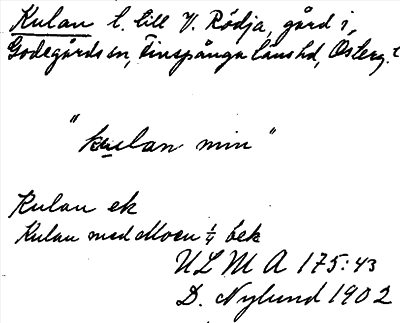 Kulan l. till V. Rödja, gård i,
Godegårds sn, Finspånga läns hd, Österg.
"kulan min"
Kulan ek
Kulan med Moen 1/4 bek
ULMA 175:43
D. Nylund 1902